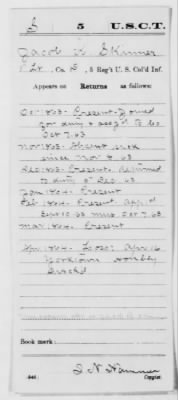 S 5 U.S.C.T.
Jacob K. Skinner
1 Lt, Co. D, 5 Reg't U. S. Col'd Inf.
Appears on
Returns as follows:
Oct 1863. Present. Joined
for duty & assg'd to Co
Oct 7.63
Nov 1863. Absent sick
since Nov 63
Dec 1863. Present. Returned
to duty Dec 63
Jan 1864. Present
Feb 1864. Present App'd
Sept 10 63 mus Oct 7.63
Mar 1864. Present
Apr 1864. Loss: Apr 16
Yorktown
Disch'd
Book mark:
(546)
Copyist.